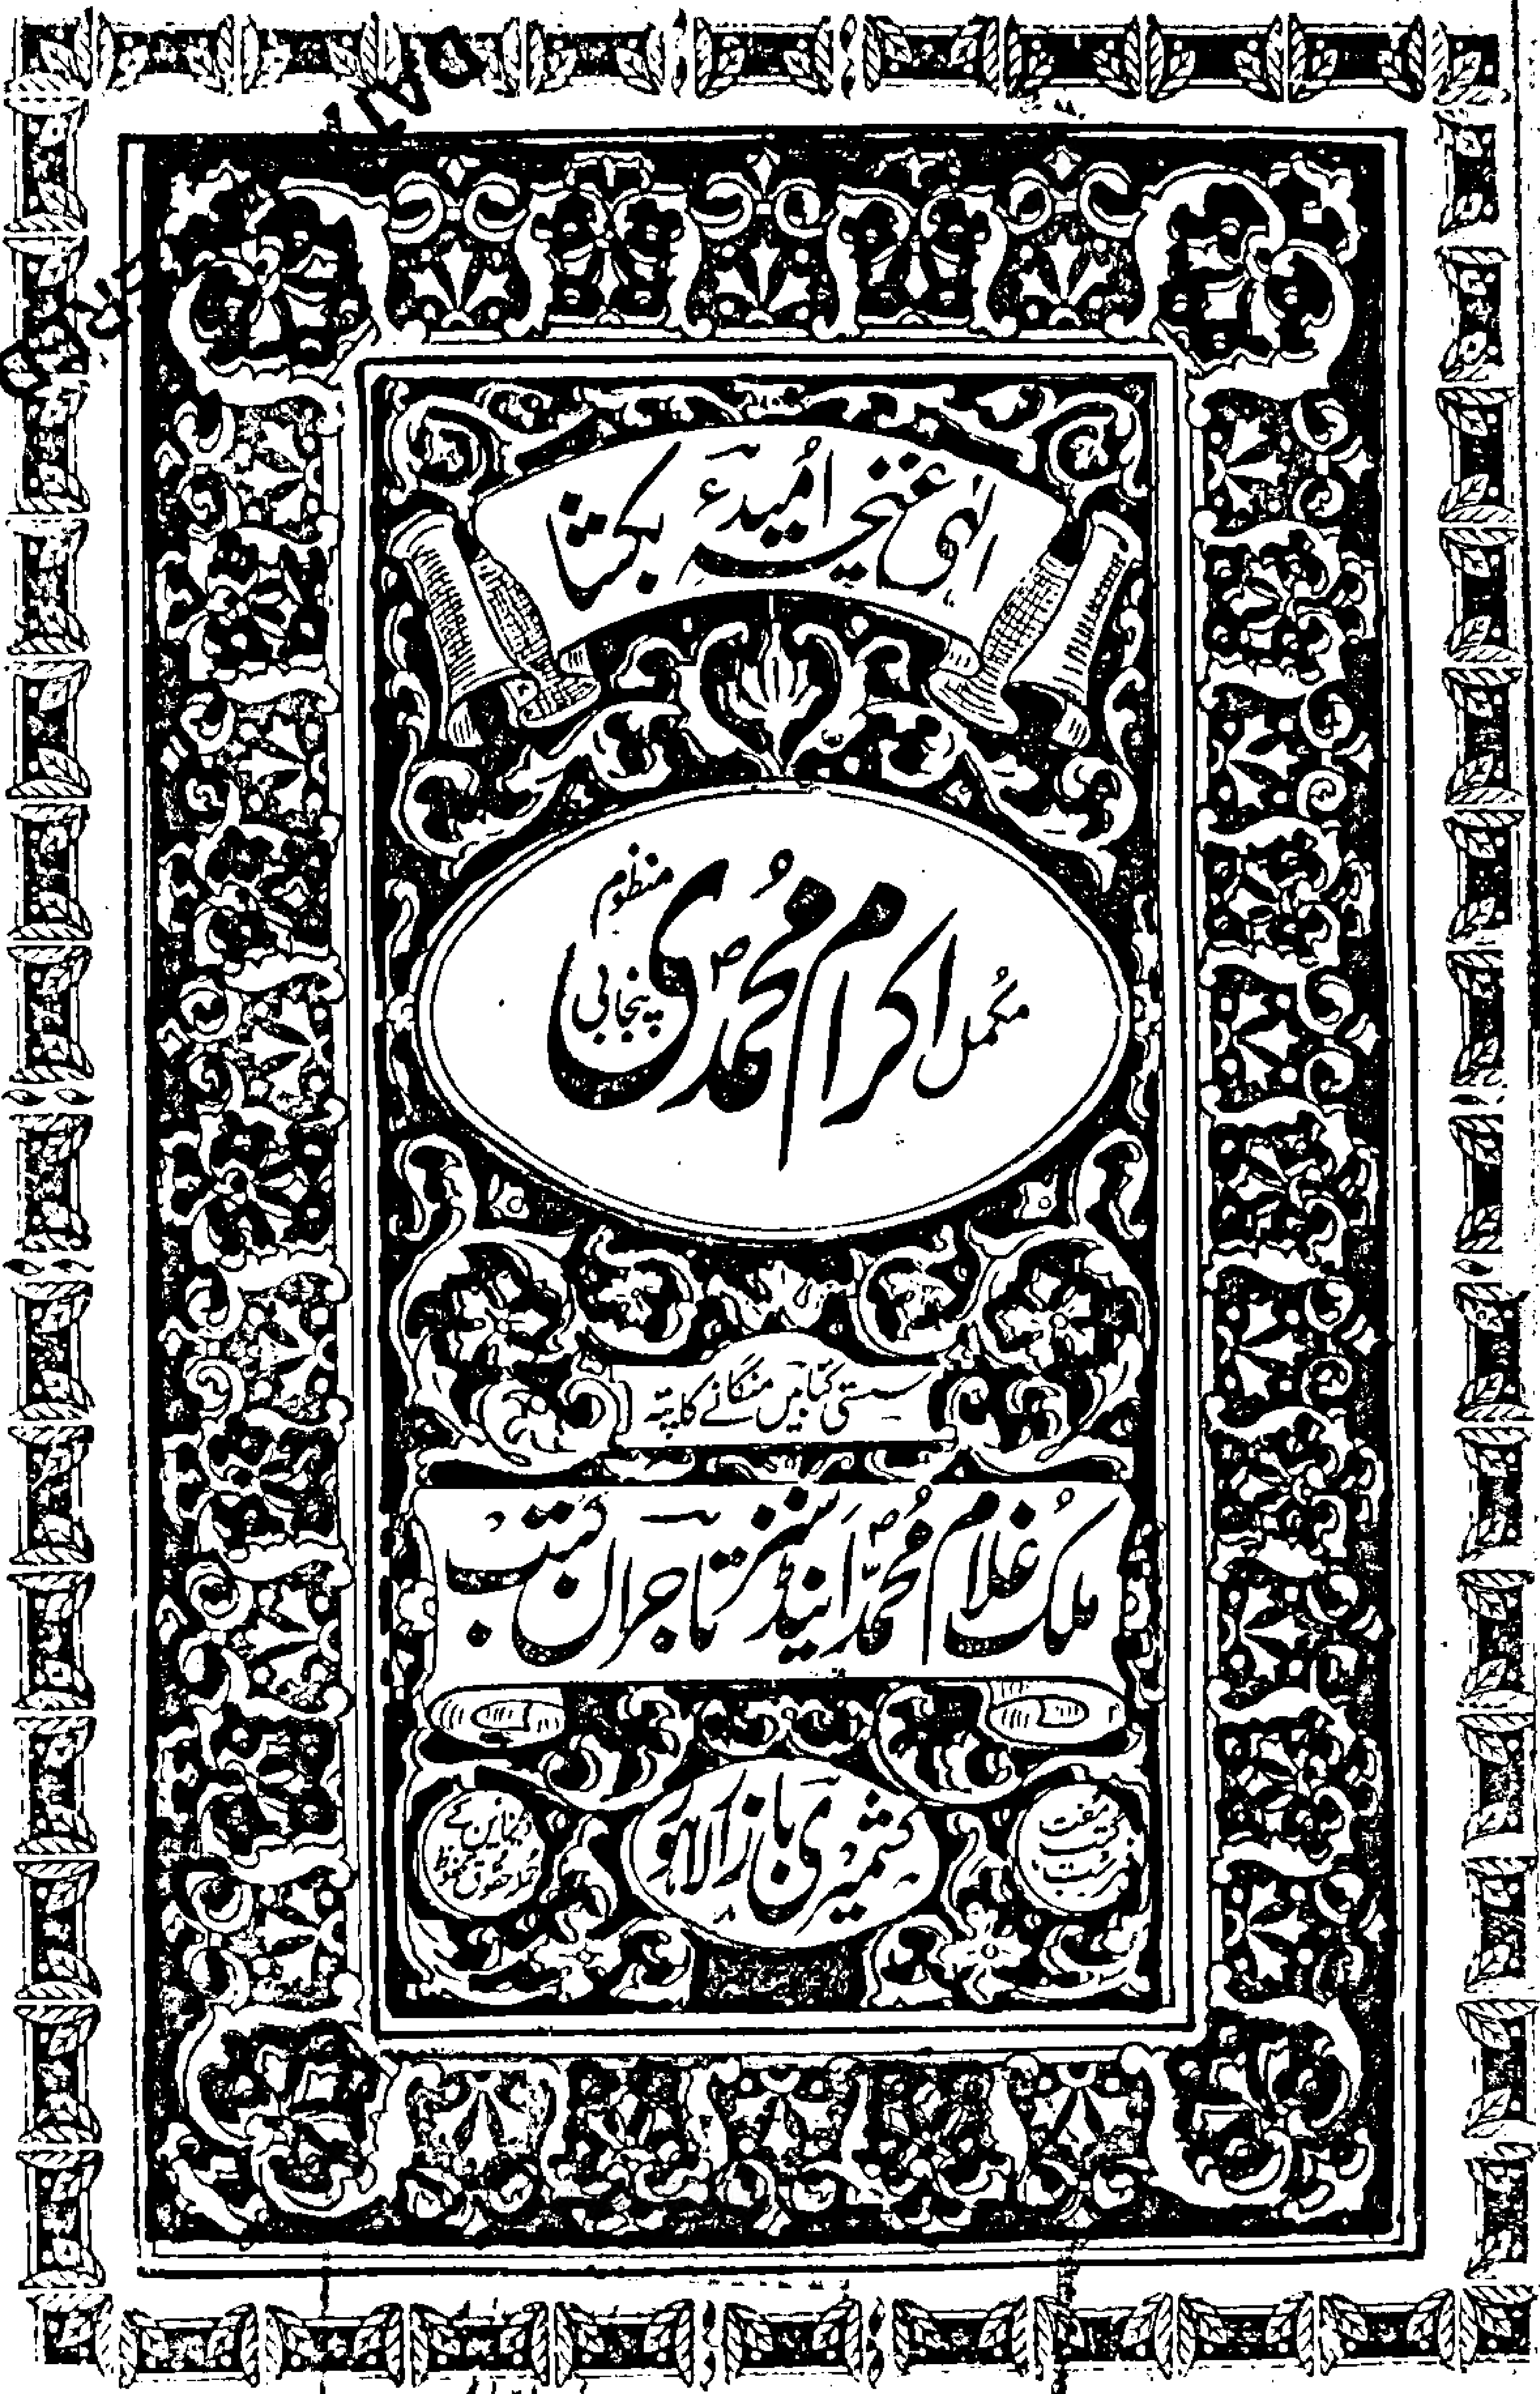 الٰہی غنچۂ امید بکشا
مکمل اکرام محمدیؐ منظوم پنجابی
سستی کتابیں منگانے کا پتہ
ملک غلام محمدؐ اینڈ سنز تاجران کتب
کشمیری بازار لاہور
حقوق محفوظ
DATA